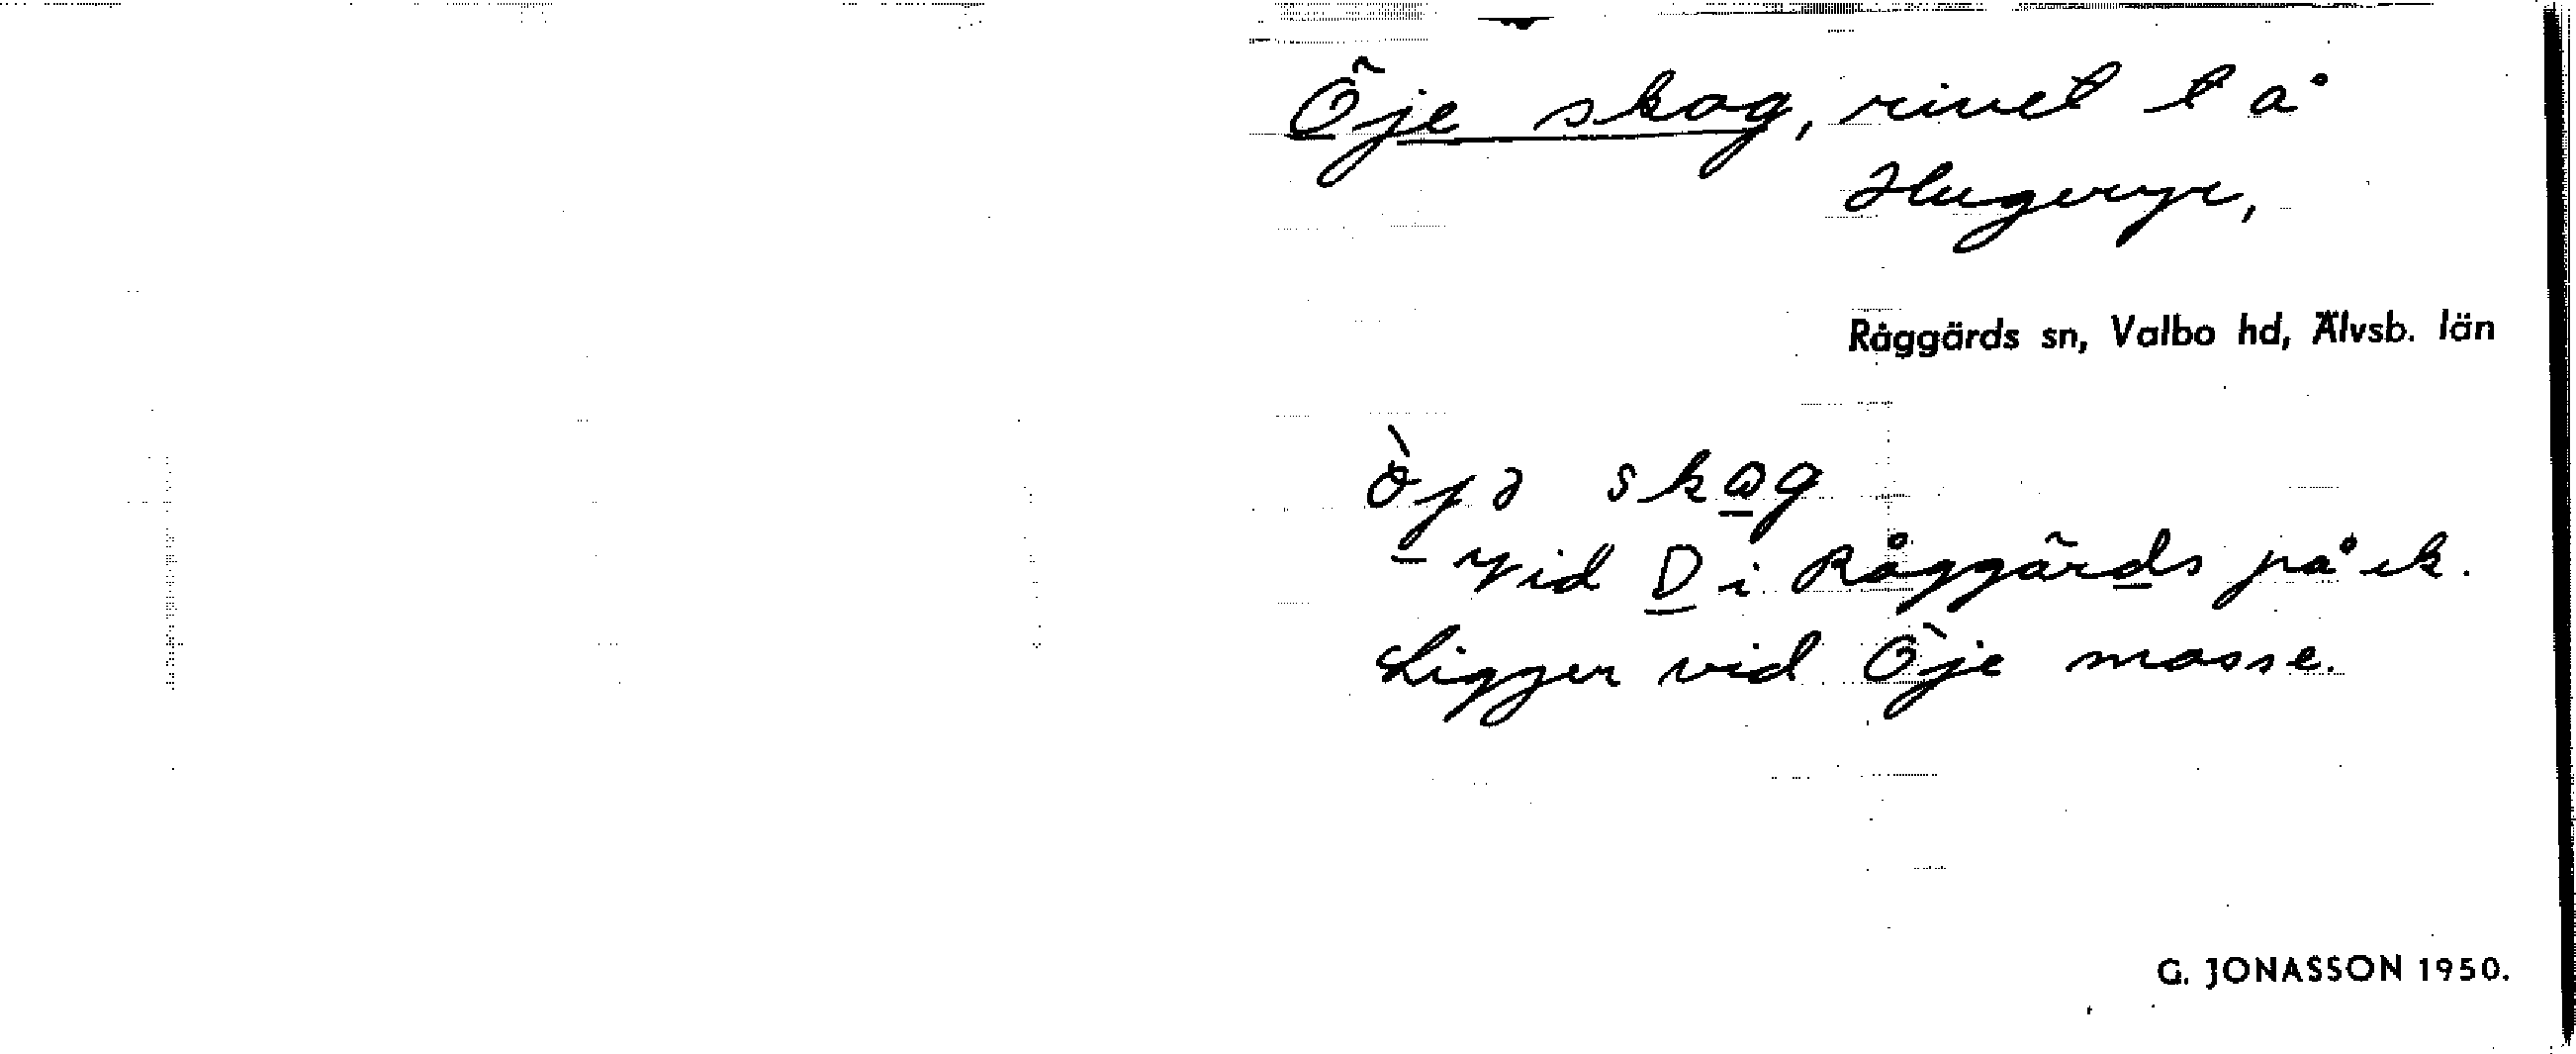 Öje skog, rivet t å
Hugeryr,
Råggärds sn, Valbo hd, Älvsb. län
skog
vid D i Råggärds på ek.
Ligger vid Öje mosse.
G. JONASSON 1950.